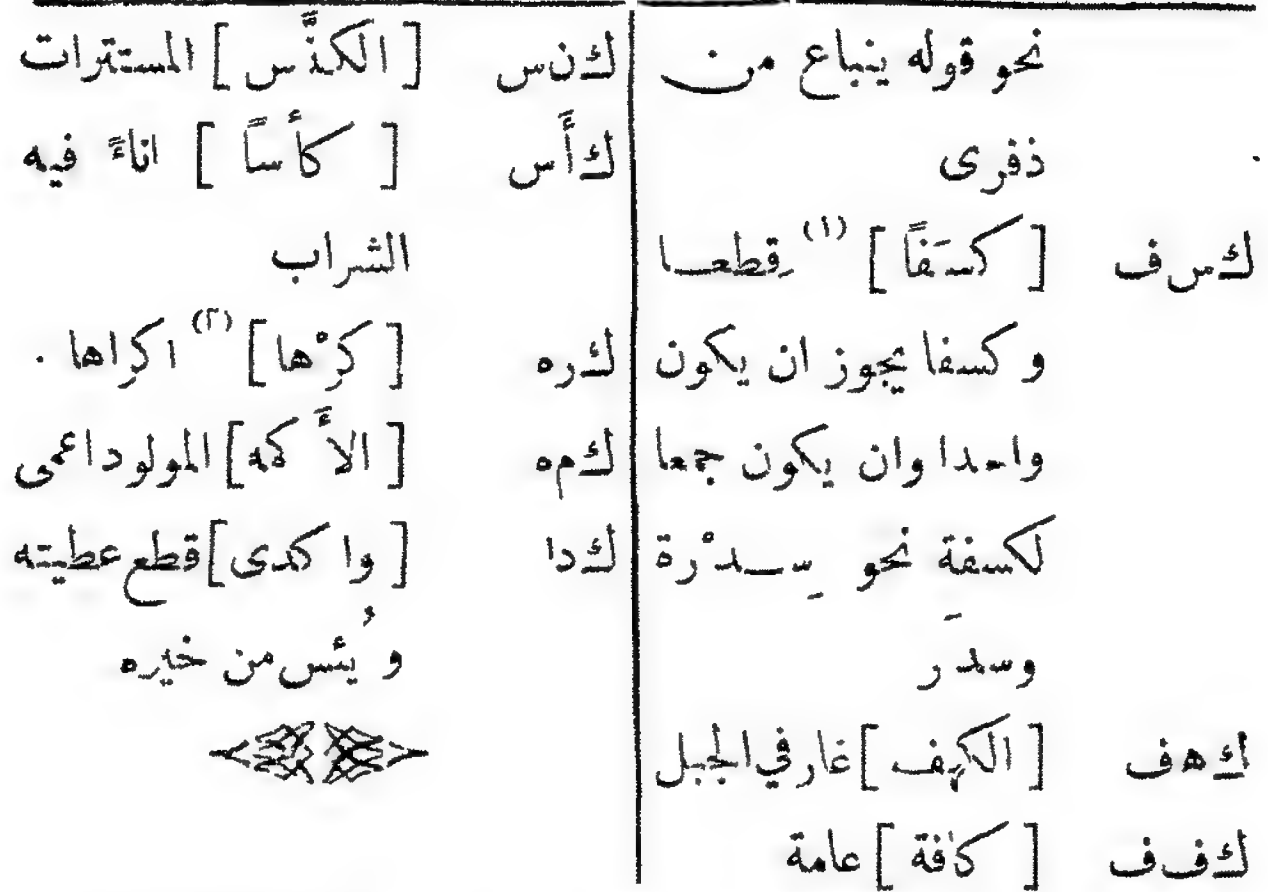 نحو قوله ينباع من
ذفرى
ك س ف [ كسَفاً ] (١) قِطعـا
و كسفا يجوز ان يكون
واحدا وان يكون جمعا
لكسفةٍ نحو سِـدْرة
وسِدَر
ك ه ف [ الكهف ] غار في الجبل
ك ف ف [ كافة ] عامة
ك ن س [ الكنَّس ] المستترات
ك أ س [ كأساً ] اناءً فيه
الشراب
ك ر ه [ كرْها ] (٢) اكراها .
ك م ه [ الأكمه ] المولود اعمى
ك د ا [ وا كدى ] قطع عطيته
و يُئس من خيره